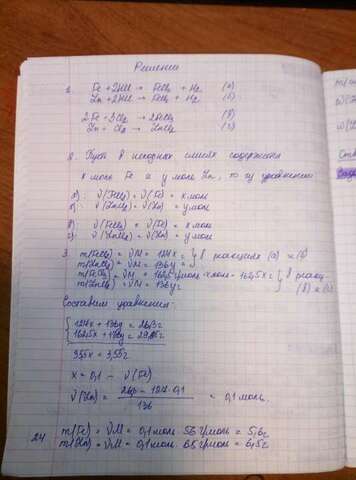 Решение
1. Fe + 2HCl → FeCl₂ + H₂ (а)
Zn + 2HCl → FeCl₂ + H₂ (б)
2Fe + 3Cl₂ → 2FeCl₃ (в)
Zn + Cl₂ → ZnCl₂ (г)
2. Пусть в исходной смеси содержится
x моль Fe и y моль Zn, то из уравнений
а) ν(FeCl₂) = ν(Fe) = x моль
б) ν(ZnCl₂) = ν(Zn) = y моль
в) ν(FeCl₃) = ν(Fe) = x моль
г) ν(ZnCl₂) = ν(Zn) = y моль
3. m(FeCl₂) = νM = 127x = } В реакциях (а) и (б)
m(ZnCl₂) = νM = 136y =
m(FeCl₃) = νM = 162,5 г/моль · x моль = 162,5x = } В реакц
m(ZnCl₂) = νM = 136y г (в) и (г)
Составим уравнения:
127x + 136y = 26,3г
162,5x + 136y = 29,85г
35,5x = 3,55г
x = 0,1 - ν(Fe)
ν(Zn) = 26,3 - 127 · 0,1 / 136 = 0,1 моль.
m(Fe) = νM = 0,1 моль · 56 г/моль = 5,6г
m(Zn) = νM = 0,1 моль · 65 г/моль = 6,5г
24
m(
W(
W(